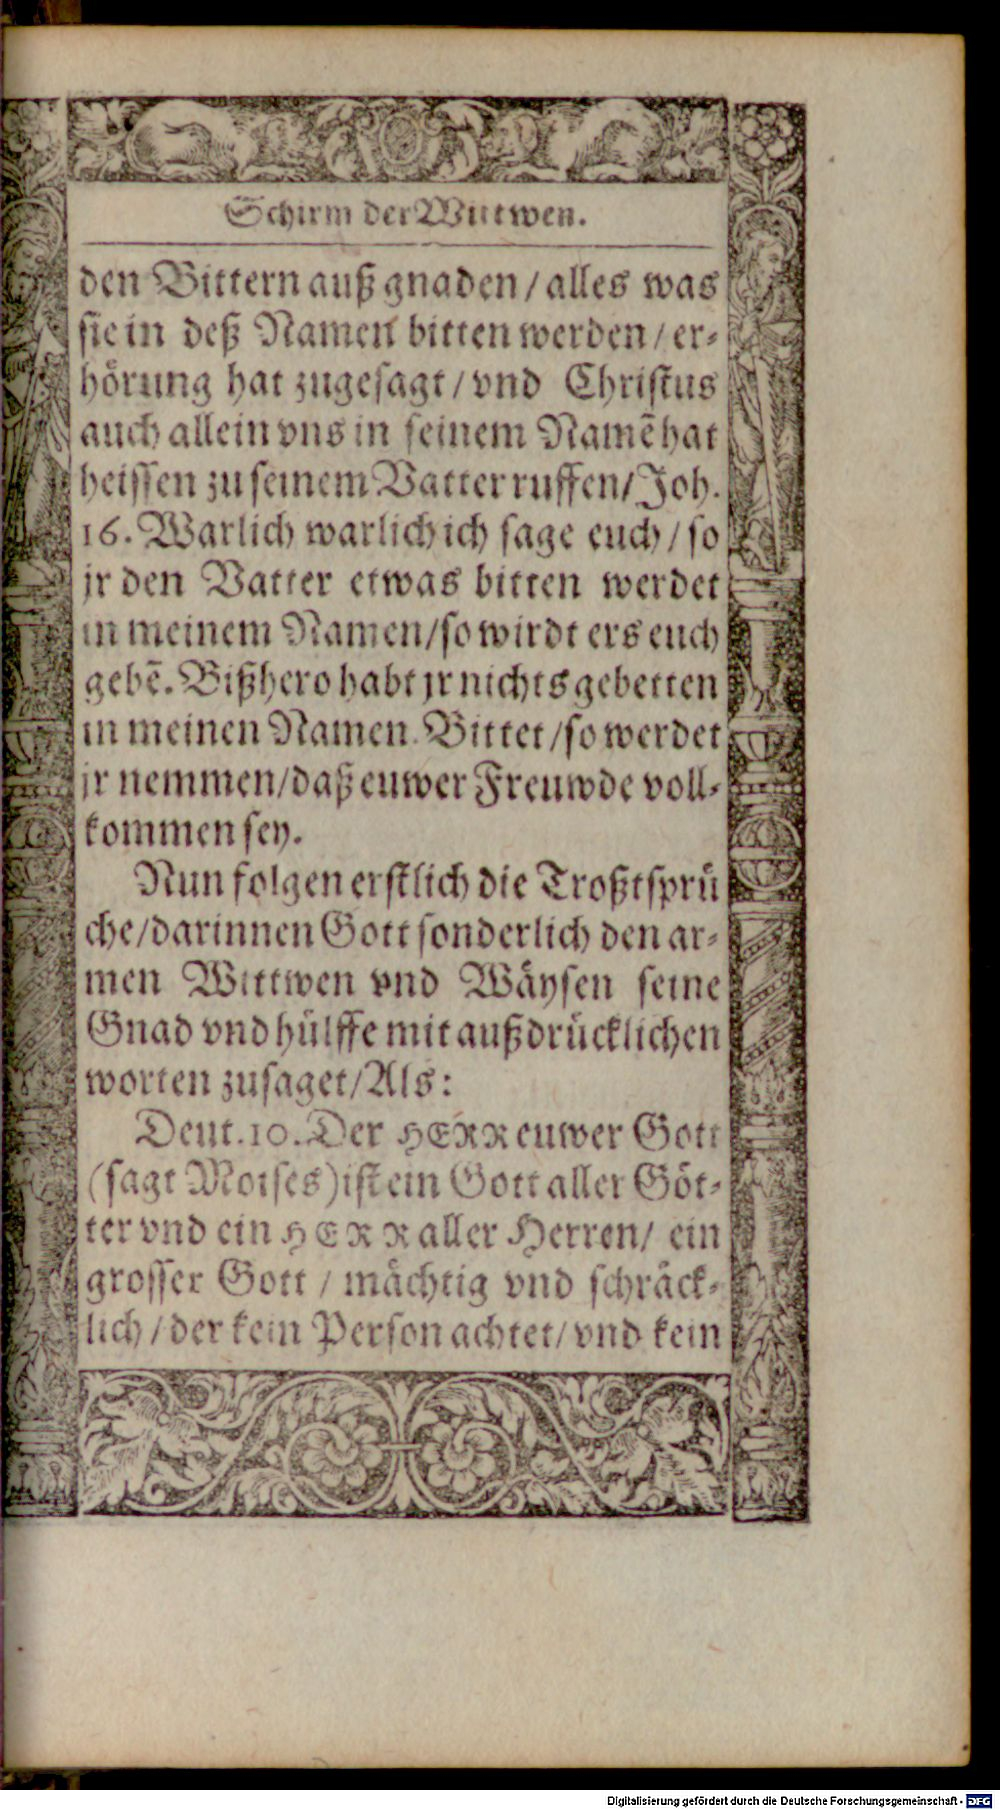 Schirm der Wittwen.
den Bittern auß gnaden / alles was
sie in deß Namen bitten werden / er-
hörung hat zugesagt / vnd Christus
auch allein vns in seinem Namẽ hat
heissen zu seinem Vatter ruffen / Joh.
16. Warlich warlich ich sage euch / so
jr den Vatter etwas bitten werdet
in meinem Namen / so wirdt ers euch
gebẽ. Bißhero habt jr nichts gebetten
in meinen Namen. Bittet / so werdet
jr nemmen / daß euwer Freuwde voll-
kommen sey.
Nun folgen erstlich die Troßtsprü
che / darinnen Gott sonderlich den ar-
men Wittwen vnd Wäysen seine
Gnad vnd hülffe mit außdrücklichen
worten zusaget / Als:
Deut. 10. Der HERR euwer Gott
(sagt Moises) ist ein Gott aller Göt-
ter vnd ein HERR aller Herren / ein
grosser Gott / mächtig vnd schräck-
lich / der kein Person achtet / vnd kein
Digitalisierung gefördert durch die Deutsche Forschungsgemeinschaft - DFG